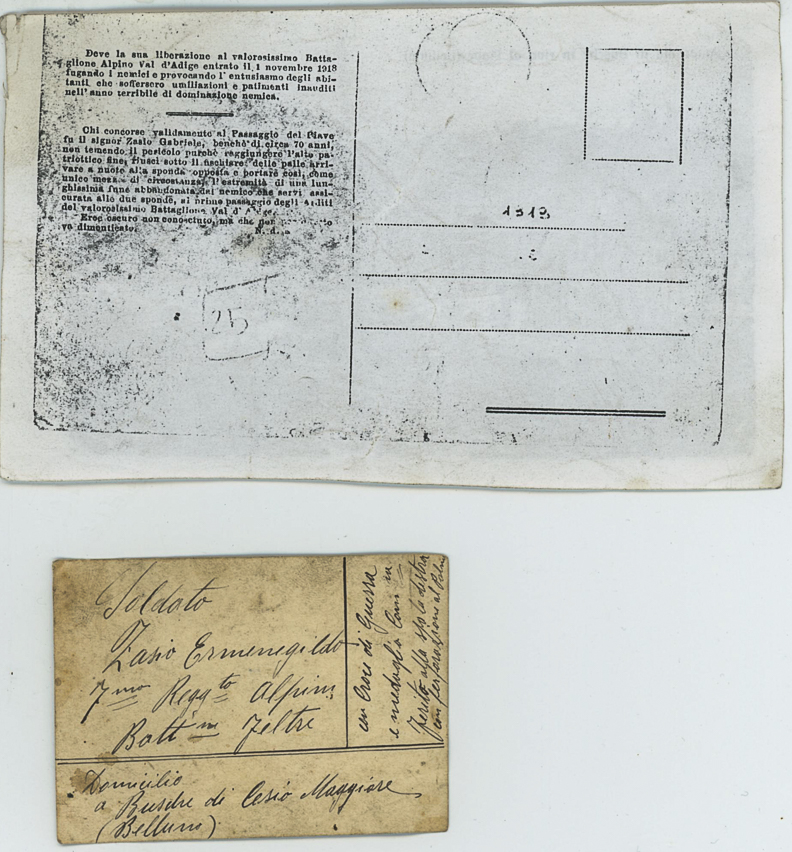 Deve la sua liberazione al valorosissimo Batta-
glione Alpino Val d'Adige entrato il 1 novembre 1918
fugando i nemici e provocando l'entusiasmo degli abi-
tanti che soffersero umiliazioni e patimenti inauditi
nell'anno terribile di dominazione nemica.
Chi concorse validamente al Passaggio del Piave
fu il signor Zasio Gabriele, benchè di circa 70 anni,
non temendo il pericolo purchè raggiungere l'alto pa-
triottico fine, riuscì sotto il fischiare delle palle arri-
vare a nuoto alla sponda opposta e portare così, come
unico mezzo di circostanza, l'estremità di una lun-
ghissima fune abbandonata dal nemico che servì assi-
curata alle due sponde, al primo passaggio degli Arditi
del valorosissimo Battaglione Val d'Adige.
Eroe oscuro non conosciuto, ma che non
va dimenticato.
N. d.
1918
25
Soldato
Zasio Ermenegildo
7mo Reggto Alpini
Battne Feltre
con Croce di Guerra
e medaglia
ferito alla spalla destra
con perforazione al
Domicilio
a Busche di Cesio Maggiore
(Belluno)